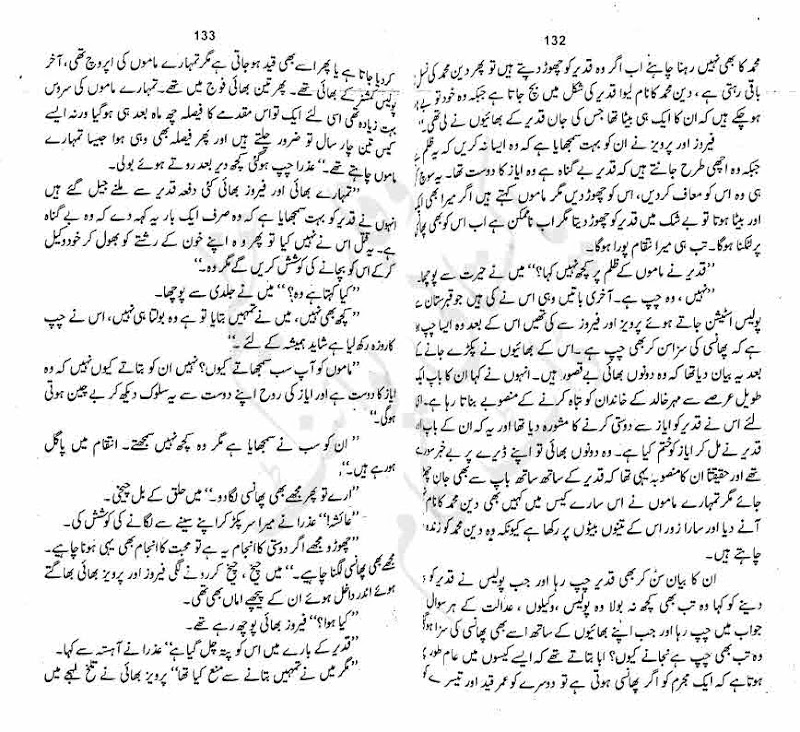 132
محمد کا بھی نہیں رہنا چاہئے اب اگر وہ قدیر کو چھوڑ دیتے ہیں تو پھر دین محمد کی نسل
باقی رہتی ہے، دین محمد کا نام لیوا قدیر کی شکل میں بچ جاتا ہے جبکہ وہ خود تو بے
ہو چکے ہیں کہ ان کا ایک ہی بیٹا تھا جس کی جان قدیر کے بھائیوں نے لی تھی۔
فیروز اور پرویز نے ان کو بہت سمجھایا ہے کہ وہ ایسا نہ کریں کہ یہ ظلم ہے
جبکہ وہ اچھی طرح جانتے ہیں کہ قدیر بے گناہ ہے وہ ایاز کا دوست تھا۔ یہ سوچ
ہی وہ اس کو معاف کر دیں، اس کو چھوڑ دیں مگر ماموں کہتے ہیں اگر میرا بھی ایک
اور بیٹا ہوتا تو بے شک میں قدیر کو چھوڑ دیتا مگر اب ناممکن ہے اب اس کو بھی
پر لٹکنا ہوگا۔ تب ہی میرا انتقام پورا ہوگا۔
”قدیر نے ماموں کے ظلم پر کچھ نہیں کہا؟“ میں نے حیرت سے پوچھا۔
”نہیں، وہ چپ ہے۔ آخری باتیں وہی اس نے کی ہیں جو قبرستان سے
پولیس اسٹیشن جاتے ہوئے پرویز اور فیروز سے کی تھیں اس کے بعد وہ ایسا چپ
ہے کہ پھانسی کی سزا سن کر بھی چپ ہے۔ اس کے بھائیوں نے پکڑے جانے کے
بعد یہ بیان دیا تھا کہ وہ دونوں بھائی بے قصور ہیں۔ انہوں نے کہا ان کا باپ ایک
طویل عرصے سے مہر خالد کے خاندان کو تباہ کرنے کے منصوبے بناتا رہا ہے۔
لئے اس نے قدیر کو ایاز سے دوستی کرنے کا مشورہ دیا تھا اور یہ کہ ان کے باپ
قدیر نے مل کر ایاز کو ختم کیا ہے۔ وہ دونوں بھائی تو اپنے ڈیرے پر بے خبر سو
تھے اور حقیقتاً ان کا منصوبہ یہی تھا کہ قدیر کے ساتھ ساتھ باپ سے بھی جان
جائے مگر تمہارے ماموں نے اس سارے کیس میں کہیں بھی دین محمد کا نام
آنے دیا اور سارا زور اس کے تینوں بیٹوں پر رکھا ہے کیونکہ وہ دین محمد کو زندہ
چاہتے ہیں۔
ان کا بیان سن کر بھی قدیر چپ رہا اور جب پولیس نے قدیر کو
دینے کو کہا وہ تب بھی کچھ نہ بولا وہ پولیس، وکیلوں، عدالت کے ہر سوال
جواب میں چپ رہا اور جب اپنے بھائیوں کے ساتھ اسے بھی پھانسی کی سزا ہو
وہ تب بھی چپ ہے نجانے کیوں؟ ابا بتاتے تھے کہ ایسے کیسوں میں عام طور
ہوتا ہے کہ ایک مجرم کو اگر پھانسی ہوتی ہے تو دوسرے کو عمر قید اور تیسرے کو
133
کر دیا جاتا ہے یا پھر اسے بھی قید ہو جاتی ہے مگر تمہارے ماموں کی اپروچ تھی، آخر
پولیس کمشنر کے بھائی تھے۔ پھر تین بھائی فوج میں تھے۔ تمہارے ماموں کی سروس
بہت زیادہ تھی اسی لئے ایک تو اس مقدمے کا فیصلہ چھ ماہ بعد ہی ہوگیا ورنہ ایسے
کیس تین چار سال تو ضرور چلتے ہیں اور پھر فیصلہ بھی وہی ہوا جیسا تمہارے
ماموں چاہتے تھے۔“ عذرا چپ ہوگئی کچھ دیر بعد روتے ہوئے بولی۔
”تمہارے بھائی اور فیروز بھائی کئی دفعہ قدیر سے ملنے جیل گئے ہیں
انہوں نے قدیر کو بہت سمجھایا ہے کہ وہ صرف ایک بار یہ کہہ دے کہ وہ بے گناہ
ہے۔ یہ قتل اس نے نہیں کیا تو پھر وہ اپنے خون کے رشتے کو بھول کر خود وکیل
کر کے اس کو بچانے کی کوشش کریں گے مگر وہ۔“
”کیا کہتا ہے وہ؟“ میں نے جلدی سے پوچھا۔
”کچھ بھی نہیں، میں نے تمہیں بتایا تو ہے وہ بولتا ہی نہیں، اس نے چپ
کا روزہ رکھ لیا ہے شاید ہمیشہ کے لئے۔“
”ماموں کو آپ سب سمجھاتے کیوں؟ نہیں ان کو بتاتے کیوں نہیں کہ وہ
ایاز کا دوست ہے اور ایاز کی روح اپنے دوست سے یہ سلوک دیکھ کر بے چین ہوتی
ہوگی۔“
”ان کو سب نے سمجھایا ہے مگر وہ کچھ نہیں سمجھتے۔ انتقام میں پاگل
ہو رہے ہیں۔“
”ارے تو پھر مجھے بھی پھانسی لگا دو۔“ میں حلق کے بل چیخی۔
”عائشہ!“ عذرا نے میرا سر پکڑ کر اپنے سینے سے لگانے کی کوشش کی۔
”چھوڑو مجھے اگر دوستی کا انجام یہ ہے تو محبت کا انجام بھی یہی ہونا چاہیے۔
مجھے بھی پھانسی لگنا چاہیے۔“ میں چیخ، چیخ کر رونے لگی فیروز اور پرویز بھائی بھاگتے
ہوئے اندر داخل ہوئے ان کے پیچھے اماں بھی تھی۔
”کیا ہوا؟“ فیروز بھائی پوچھ رہے تھے۔
”قدیر کے بارے میں اس کو پتہ چل گیا ہے“ عذرا نے آہستہ سے کہا۔
”مگر میں نے تمہیں بتانے سے منع کیا تھا“ پرویز بھائی نے تلخ لہجے میں